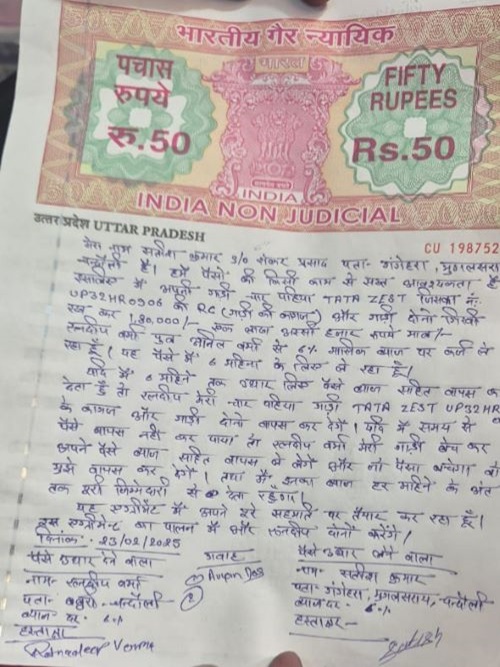 भारतीय गैर न्यायिक
भारत
पचास
रुपये
रु.50
FIFTY
RUPEES
Rs.50
INDIA
INDIA NON JUDICIAL
उत्तर प्रदेश UTTAR PRADESH
CU 198752
मेरा नाम सतीश कुमार S/o शंकर प्रसाद पता- गंगेहरा, मुगलसराय
चन्दौली है। हमें पैसों की किसी काम से सख्त आवश्यकता है
इसलिए मैं अपनी गाड़ी चार पहिया TATA ZEST जिसका नं.
UP32HR0306 की RC (गाड़ी का कागज) और गाड़ी दोनों गिरवी
रख कर 1,80,000/- एक लाख अस्सी हजार रुपये मात्र/-
रत्नदीप वर्मा पुत्र वर्मा से 6% मासिक ब्याज पर कर्ज ले
रहा हूँ। यह पैसे मैं 6 महिना के लिए ले रहा हूँ।
यदि मैं 6 महिने तक उधार लिए पैसे ब्याज सहित वापस कर
देता हूँ तो रत्नदीप मेरी चार पहिया गाड़ी TATA ZEST UP32HR
के कागज और गाड़ी दोनों वापस कर देंगे। यदि मैं समय से
पैसे वापस नहीं कर पाया तो रत्नदीप वर्मा मेरी गाड़ी बेच कर
अपने पैसे ब्याज सहित वापस ले लेंगे और जो पैसा बचेगा वो
मुझे वापस कर देंगे। तथा मैं इनका ब्याज हर महिने के अंत
तक पूरी जिम्मेदारी से देता रहूँगा।
यह एग्रीमेंट मैं अपने पूरे सहमति पर तैयार कर रहा हूँ।
इस एग्रीमेंट का पालन मैं और रत्नदीप दोनों करेंगे।
दिनांक - 23/02/2025
पैसे उधार देने वाला
नाम- रत्नदीप वर्मा
पता- चन्दौली
ब्याज दर- 6%
हस्ताक्षर
Ratnadeep Verma
गवाह
①
②
पैसे उधार लेने वाला
नाम- सतीश कुमार
पता- गंगेहरा, मुगलसराय, चन्दौली
ब्याज दर- 6%
हस्ताक्षर-